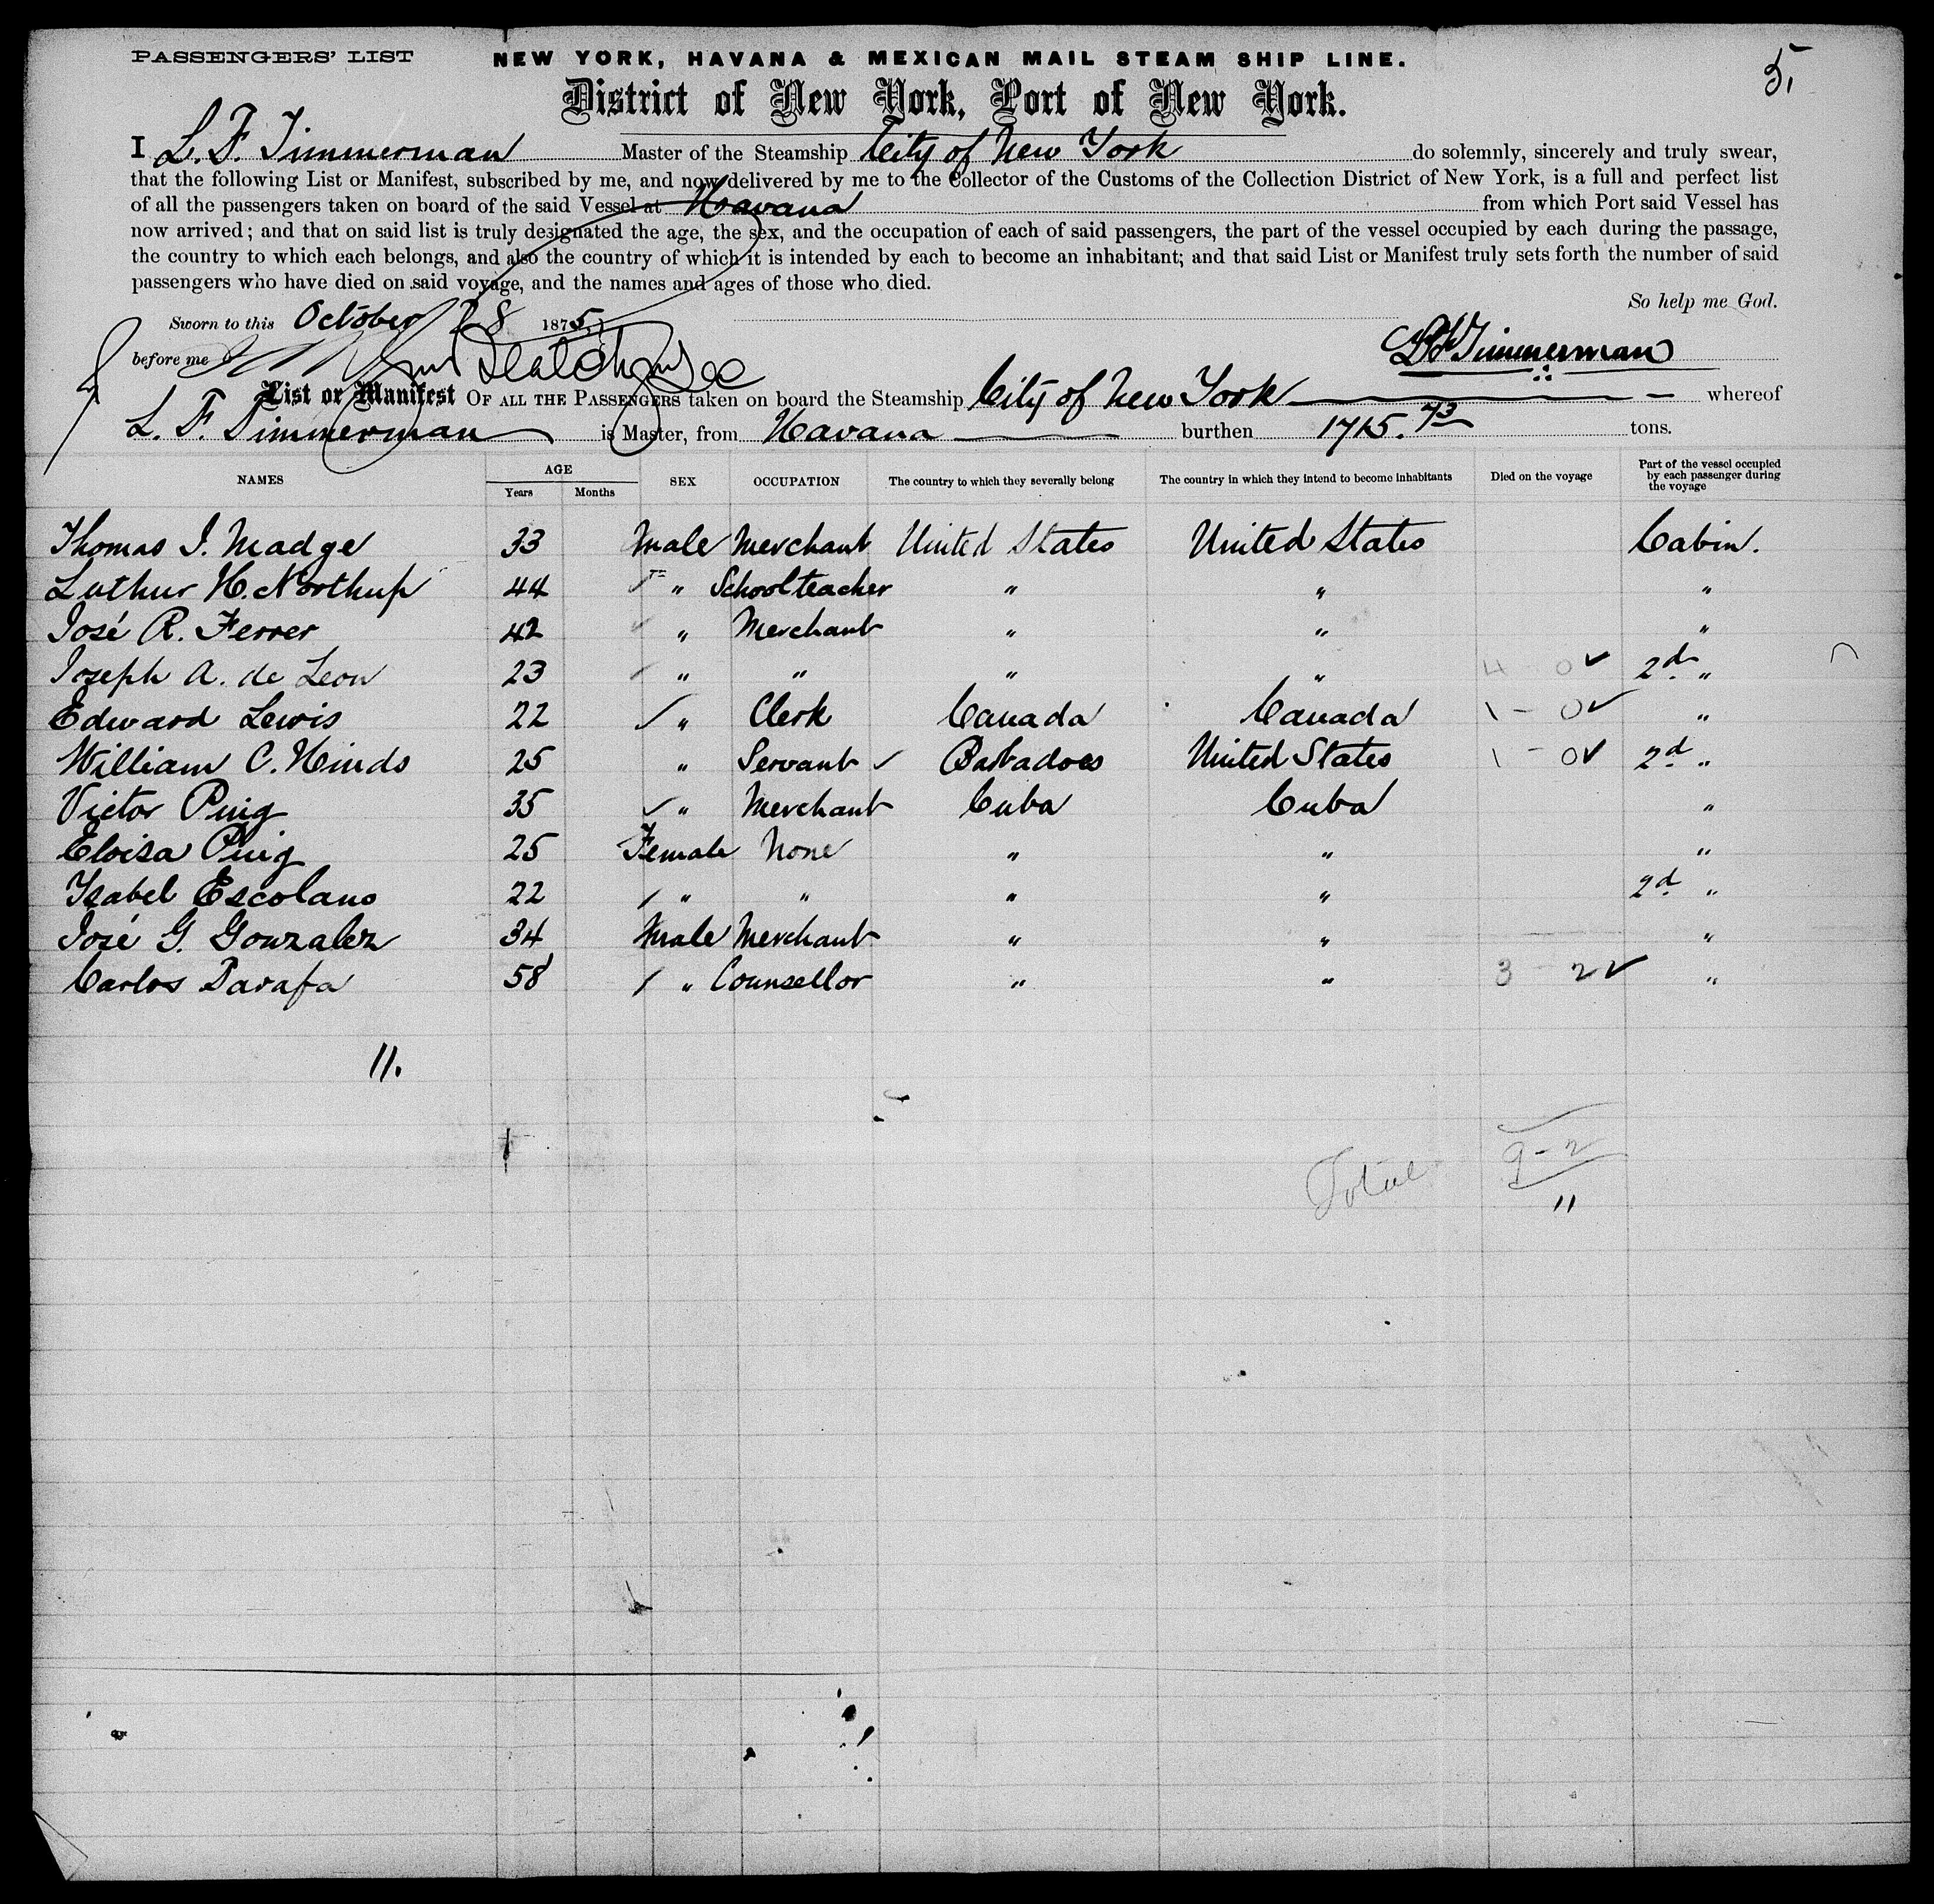 PASSENGERS' LIST NEW YORK, HAVANA & MEXICAN MAIL STEAM SHIP LINE. 5,
District of New York, Port of New York.
I L. F. Timmerman Master of the Steamship City of New York do solemnly, sincerely and truly swear,
that the following List or Manifest, subscribed by me, and now delivered by me to the Collector of the Customs of the Collection District of New York, is a full and perfect list
of all the passengers taken on board of the said Vessel at Havana from which Port said Vessel has
now arrived; and that on said list is truly designated the age, the sex, and the occupation of each of said passengers, the part of the vessel occupied by each during the passage,
the country to which each belongs, and also the country of which it is intended by each to become an inhabitant; and that said List or Manifest truly sets forth the number of said
passengers who have died on said voyage, and the names and ages of those who died.
So help me God.
Sworn to this October 28 1875
before me L F Timmerman
List or Manifest OF ALL THE PASSENGERS taken on board the Steamship City of New York whereof
L. F. Timmerman is Master, from Havana burthen 1715.43 tons.
NAMES AGE Years Months SEX OCCUPATION The country to which they severally belong The country in which they intend to become inhabitants Died on the voyage Part of the vessel occupied by each passenger during the voyage
Thomas I. Madge 33 Male Merchant United States United States Cabin.
Luthur H. Northup 44 " Schoolteacher " " "
José R. Ferrer 42 " Merchant " " "
Joseph A. de Leon 23 " " " " 4 0 ✓ 2d "
Edward Lewis 22 ✓ " Clerk Canada Canada 1 - 0 ✓ "
William C. Hinds 25 " Servant ✓ Barbadoes United States 1 - 0 ✓ 2d "
Victor Puig 35 ✓ " Merchant Cuba Cuba "
Eloisa Puig 25 Female None " " "
Isabel Escolano 22 " " " " 2d "
José G. Gonzalez 34 Male Merchant " " "
Carlos Parafa 58 " Counsellor " " 3 - 2 ✓ "
11.
Total 9 - 2
11